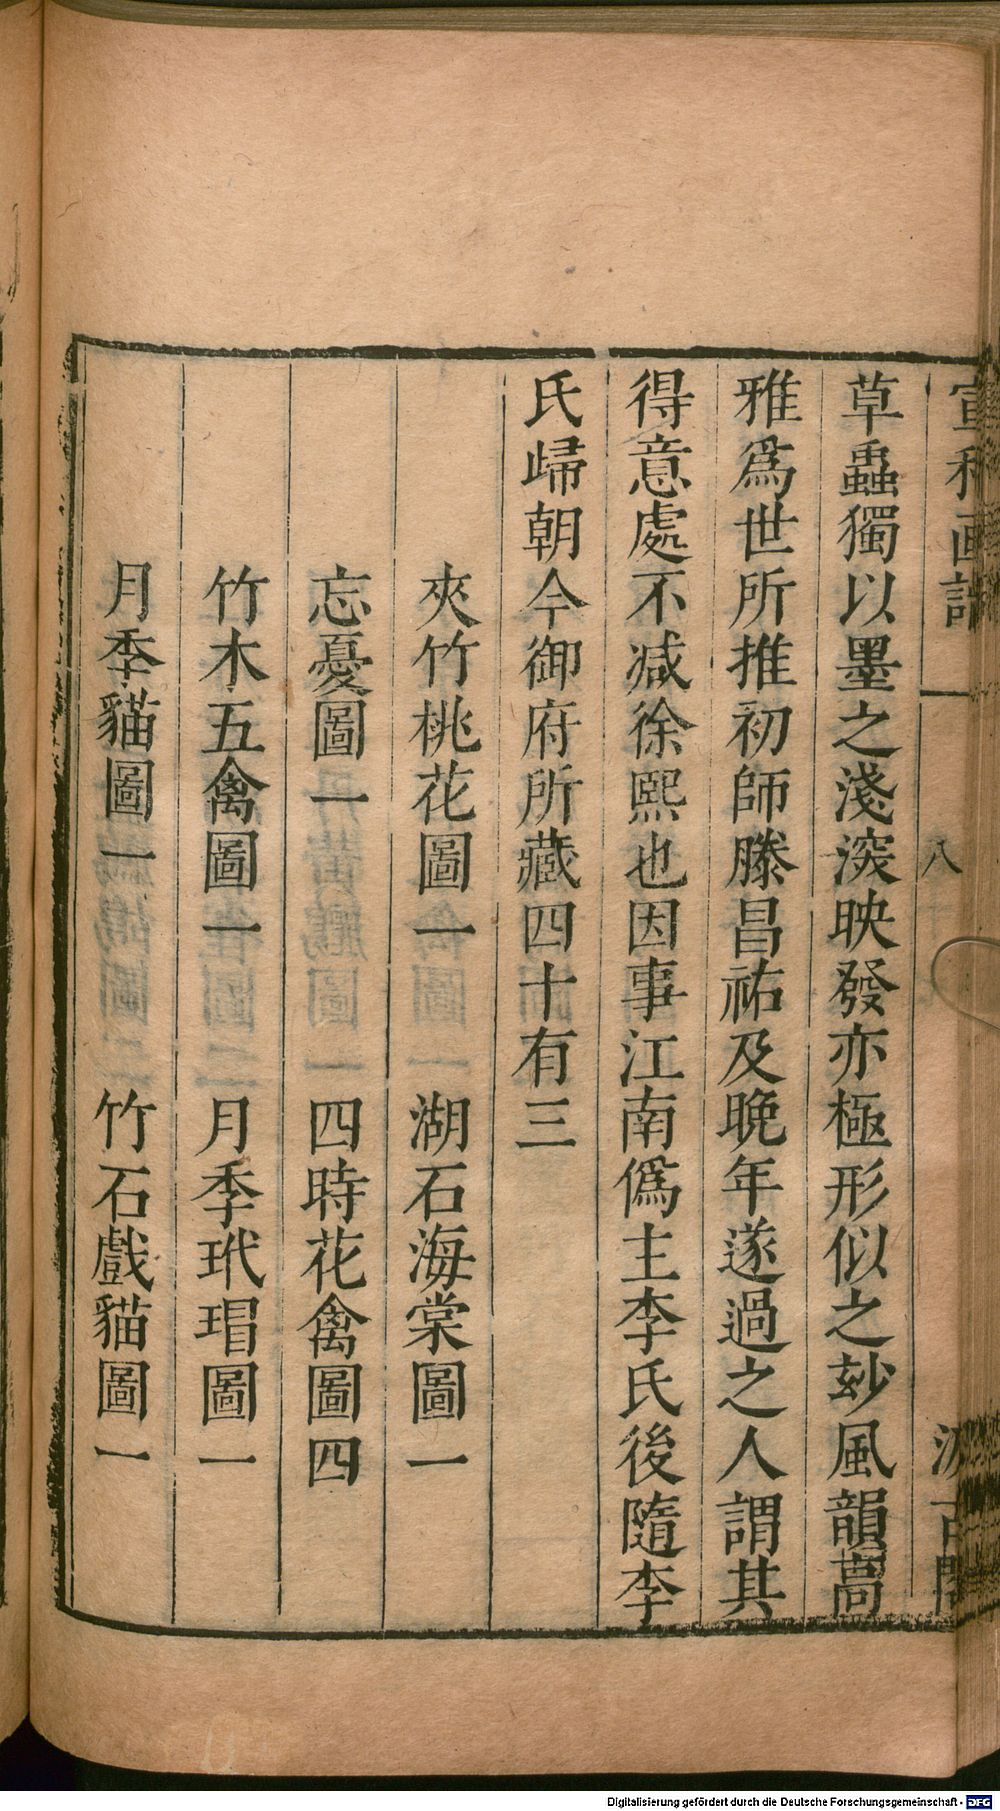 宣和画譜 八 汲古閣
草蟲獨以墨之淺深映發亦極形似之玅風韻高
雅爲世所推初師滕昌祐及晚年遂過之人謂其
得意處不减徐熙也因事江南僞主李氏後隨李
氏歸朝今御府所藏四十有三
夾竹桃花圖一 湖石海棠圖一
忘憂圖一 四時花禽圖四
竹木五禽圖一 月季玳瑁圖一
月季貓圖一 竹石戲貓圖一
Digitalisierung gefördert durch die Deutsche Forschungsgemeinschaft - DFG